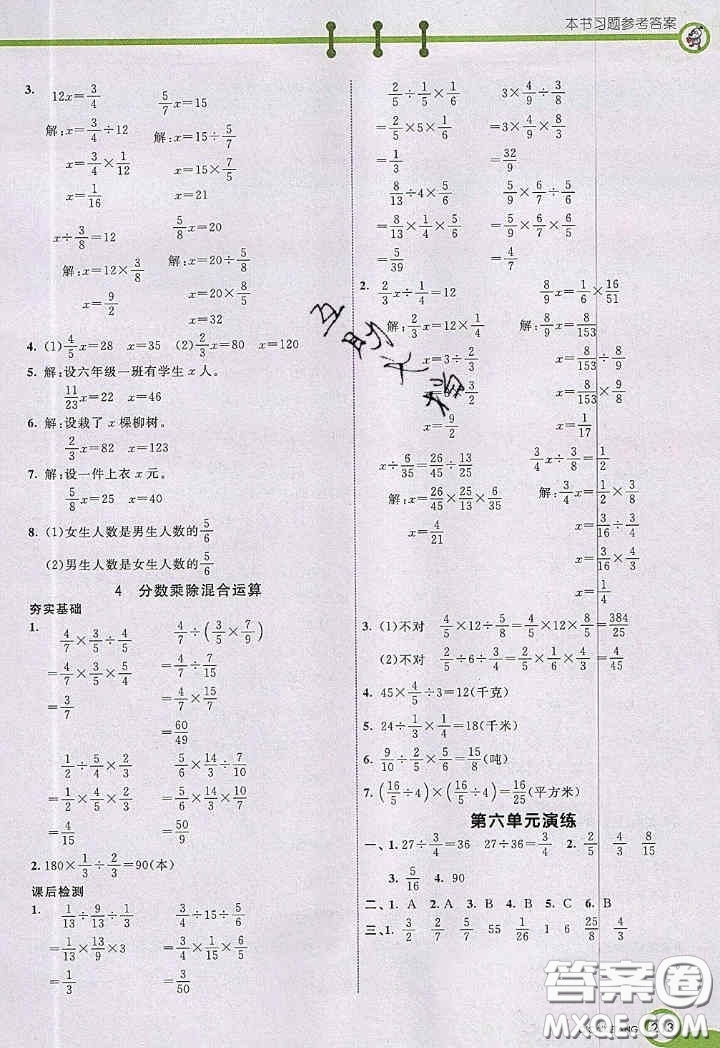 本书习题参考答案
3. 12x=3/4  5/7x=15
解:x=3/4÷12  解:x=15÷5/7
x=3/4×1/12  x=15×7/5
x=1/16  x=21
x÷3/8=12  5/8x=20
解:x=12×3/8  解:x=20÷5/8
x=9/2  x=20×8/5
x=32
4. (1)4/5x=28  x=35  (2)2/3x=80  x=120
5. 解:设六年级一班有学生 x 人。
11/23x=22  x=46
6. 解:设栽了 x 棵柳树。
2/3x=82  x=123
7. 解:设一件上衣 x 元。
5/8x=25  x=40
8. (1)女生人数是男生人数的5/6
(2)男生人数是女生人数的5/6
4 分数乘除混合运算
夯实基础
1. 4/7×3/5÷4/5  4/7÷(3/5×7/9)
=4/7×3/5×5/4  =4/7÷7/15
=3/7  =4/7×15/7
=60/49
1/2÷5/4×2/3  5/6×2/3÷7/10
=1/2×4/5×2/3  =5/6×2/3×10/7
=4/15  =50/9
2. 180×1/3÷2/3=90(本)
课后检测
1. 1/13÷9/13÷1/3  3/4÷15÷5/6
=1/13×13/9×3  =3/4×1/15×6/5
=1/3  =3/50
2/5÷1/5×1/6  3×4/3÷3/8
=2/5×5×1/6  =3×4/3×8/3
=1/3  =32/9
8/13÷4×5/6  5/9×6/7÷5/7
=8/13×1/4×5/6  =5/9×6/7×7/5
=5/39  =4/7
2. 2/3x÷1/4=12  8/9x=1/6×16/51
解:2/3x=12×1/4  解:8/9x=8/153
x=3÷2/3  x=8/153÷8/9
x=3×3/2  x=8/153×9/8
x=9/2  x=1/17
x÷6/35=26/45÷13/25  3/4x÷3/8=1/2
解:x=26/45×25/13×6/35  解:3/4x=1/2×3/8
x=4/21  x=3/16÷3/4
x=3/16×4/3
x=1/4
3. (1)不对  4/5×12÷5/8=4/5×12×8/5=384/25
(2)不对  2/5÷6÷3/4=2/5×1/6×4/3=4/45
4. 45×4/5÷3=12(千克)
5. 24÷1/3×1/4=18(千米)
6. 9/10÷2/5×5/6=15/8(吨)
7. (16/5÷4)×(16/5÷4)=16/25(平方米)
第六单元演练
一、1. 27÷3/4=36  27÷36=3/4  2. 2/5  3/4  8/15
3. 5/16  4. 90
二、1. A  2. A  3. A  4. B  5. C  6. B
三、1. 3/2  2/7  55  1/26  1  6  25/8  4/3
答案圈
MXQE.COM